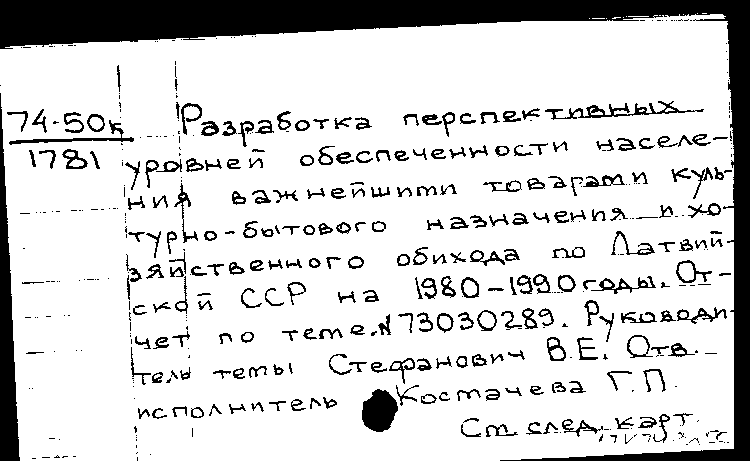 74-50к Разработка перспективных
1781 уровней обеспеченности населе-
ния важнейшими товарами куль-
турно-бытового назначения и хо-
зяйственного обихода по Латвий-
ской ССР на 1980-1990 годы. От-
чет по теме. N73030289. Руководи-
тель темы Стефанович В.Е. Отв.
исполнитель Костачева Г.П.
См. след. карт.